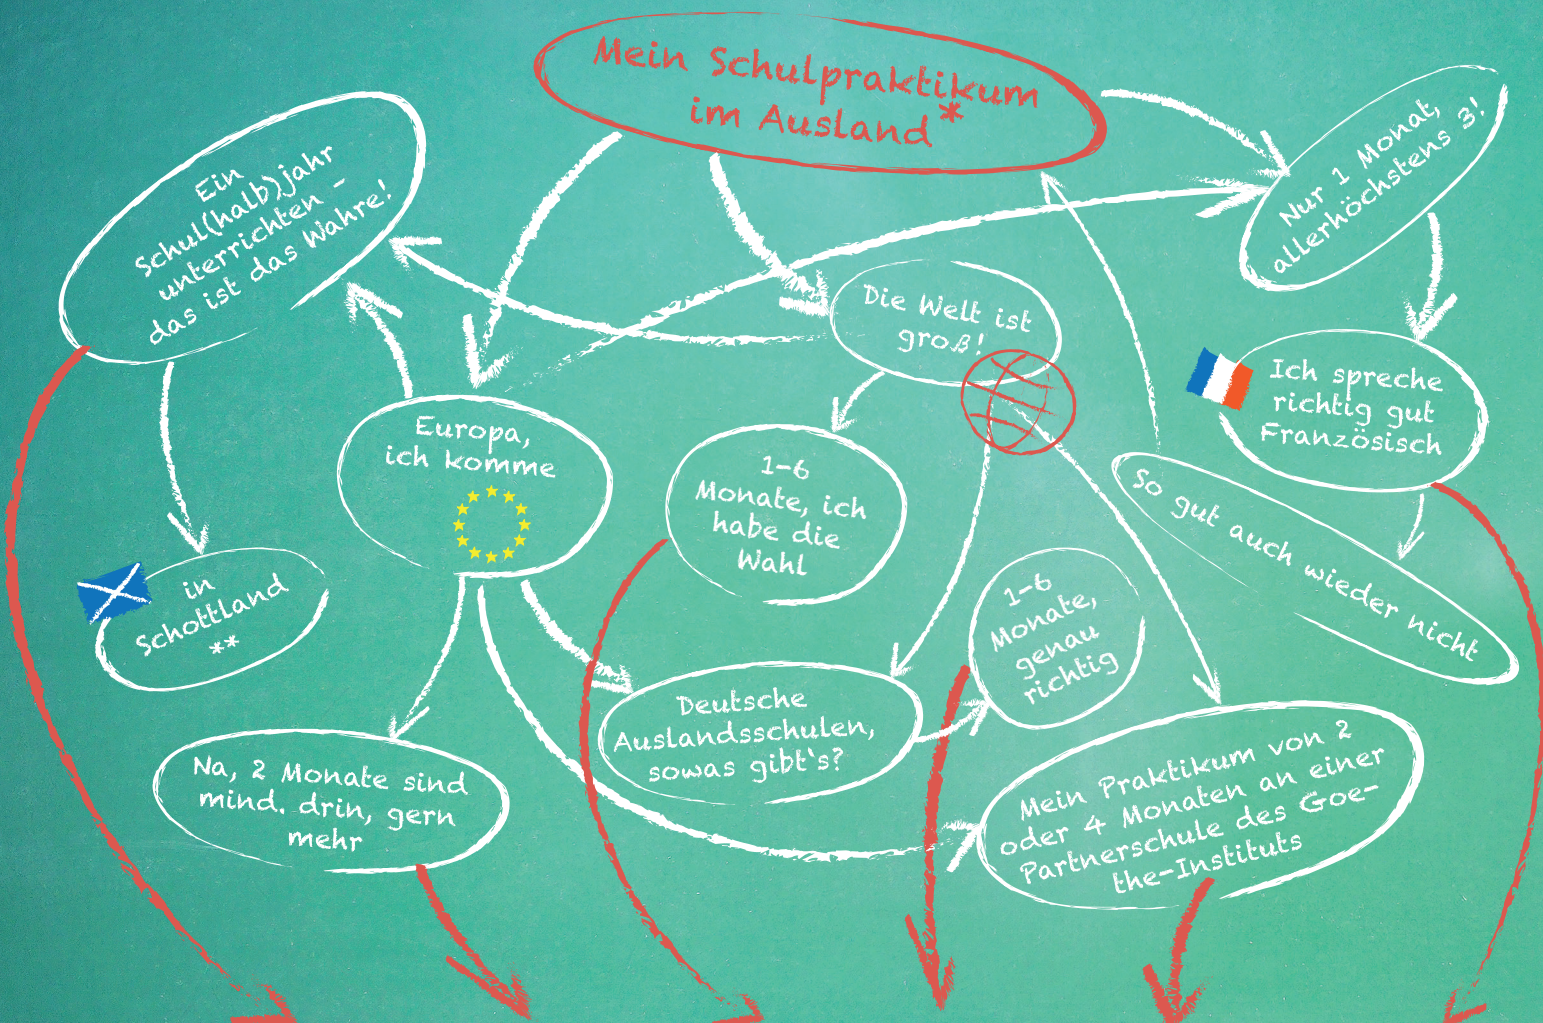 Mein Schulpraktikum
im Ausland*
Ein
Schul(halb)jahr
unterrichten -
das ist das Wahre!
Nur 1 Monat,
allerhöchstens 3!
Die Welt ist
groß!
Ich spreche
richtig gut
Französisch
Europa,
ich komme
1-6
Monate, ich
habe die
Wahl
So gut auch wieder nicht
in
Schottland
**
1-6
Monate,
genau
richtig
Deutsche
Auslandsschulen,
sowas gibt's?
Na, 2 Monate sind
mind. drin, gern
mehr
Mein Praktikum von 2
oder 4 Monaten an einer
Partnerschule des Goe-
the-Instituts